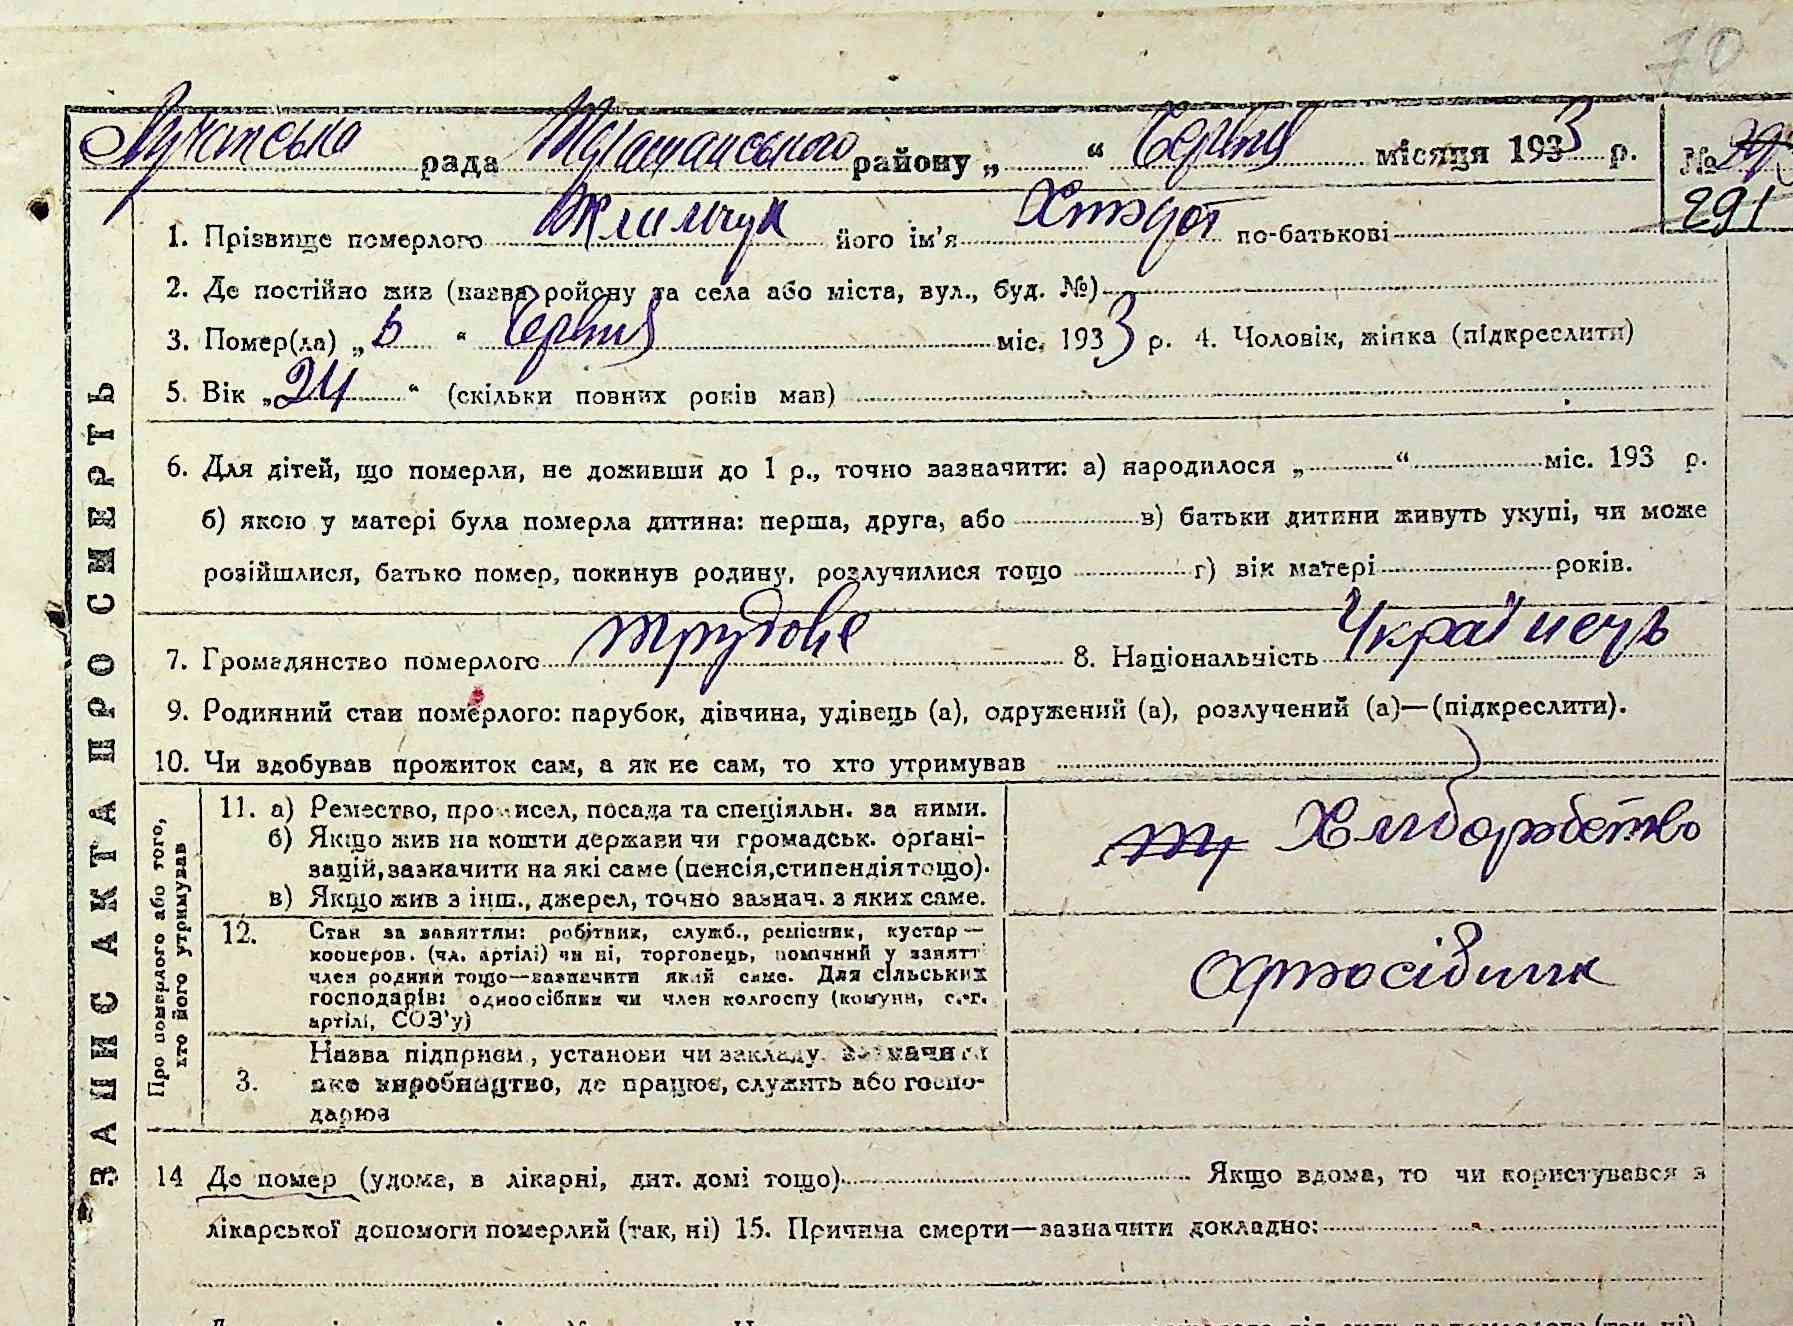 70
рада району „ “ Червня місяця 1933 р. №
291
1. Прізвище померлого Климчук його ім'я по-батькові
2. Де постійно жив (назва ройону та села або міста, вул., буд. №)
3. Помер(ла) „5 “ Червня міс. 1933 р. 4. Чоловік, жінка (підкреслити)
5. Вік „24 “ (скільки повних років мав)
6. Для дітей, що померли, не доживши до 1 р., точно зазначити: а) народилося „ “ міс. 193 р.
б) якою у матері була померла дитина: перша, друга, або в) батьки дитини живуть укупі, чи може
розійшлися, батько помер, покинув родину, розлучилися тощо г) вік матері років.
7. Громадянство померлого трудове 8. Національність Українець
9. Родинний стан померлого: парубок, дівчина, удівець (а), одружений (а), розлучений (а)—(підкреслити).
10. Чи здобував прожиток сам, а як не сам, то хто утримував
11. а) Ремество, про исел, посада та спеціяльн. за ними.
б) Якщо жив на кошти держави чи громадськ. орґані-
зацій, зазначити на які саме (пенсія, стипендія тощо).
в) Якщо жив з інш., джерел, точно зазнач. з яких саме.
Хліборобство
12. Стан за заняттям: робітник, служб., ремісник, кустар—
кооперов. (чл. артілі) чи ні, торговець, помічний у занятт
член родини тощо—зазначити який саме. Для сільських
господарів: одноосібник чи член колгоспу (комуни, с.-г.
артілі, СОЗ'у)
3. Назва підприєм, установи чи закладу, зазначити
яке виробництво, де працює, служить або госпо-
дарює
Про померлого або того,
хто його утримував
ЗАПИС АКТА ПРО СМЕРТЬ
14 Де помер (удома, в лікарні, дит. домі тощо) Якщо вдома, то чи користувався з
лікарської допомоги померлий (так, ні) 15. Причина смерти—зазначити докладно: